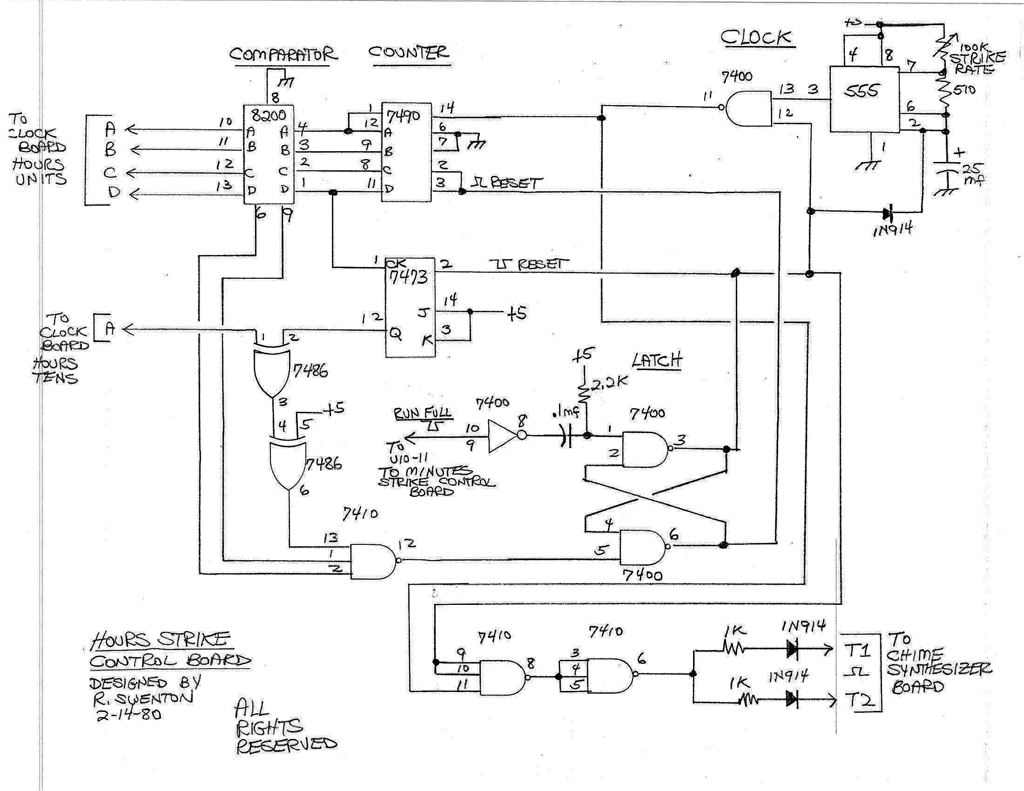 COMPARATOR
COUNTER
CLOCK
+5
100K
STRIKE
RATE
510
4
8
7
555
3
6
2
1
+
25
mf
1N914
7400
11
13
12
8
8200
A
B
C
D
4
3
2
1
10
11
12
13
6
9
TO
CLOCK
BOARD
HOURS
UNITS
A
B
C
D
7490
1
12
9
8
11
A
B
C
D
14
6
7
2
3
RESET
1
CK
7473
2
RESET
14
J
3
K
+5
12
Q
TO
CLOCK
BOARD
HOURS
TENS
A
1
2
7486
3
4
5
+5
7486
6
LATCH
+5
2.2K
.1mf
RUN FULL
7400
10
9
8
TO
U10-11
TO MINUTES
STRIKE CONTROL
BOARD
7400
1
2
3
4
5
6
7400
7410
13
1
2
12
7410
9
10
11
8
7410
3
4
5
6
1K
1N914
T1
1K
1N914
T2
TO
CHIME
SYNTHESIZER
BOARD
HOURS STRIKE
CONTROL BOARD
DESIGNED BY
R. SWENTON
2-14-80
ALL
RIGHTS
RESERVED